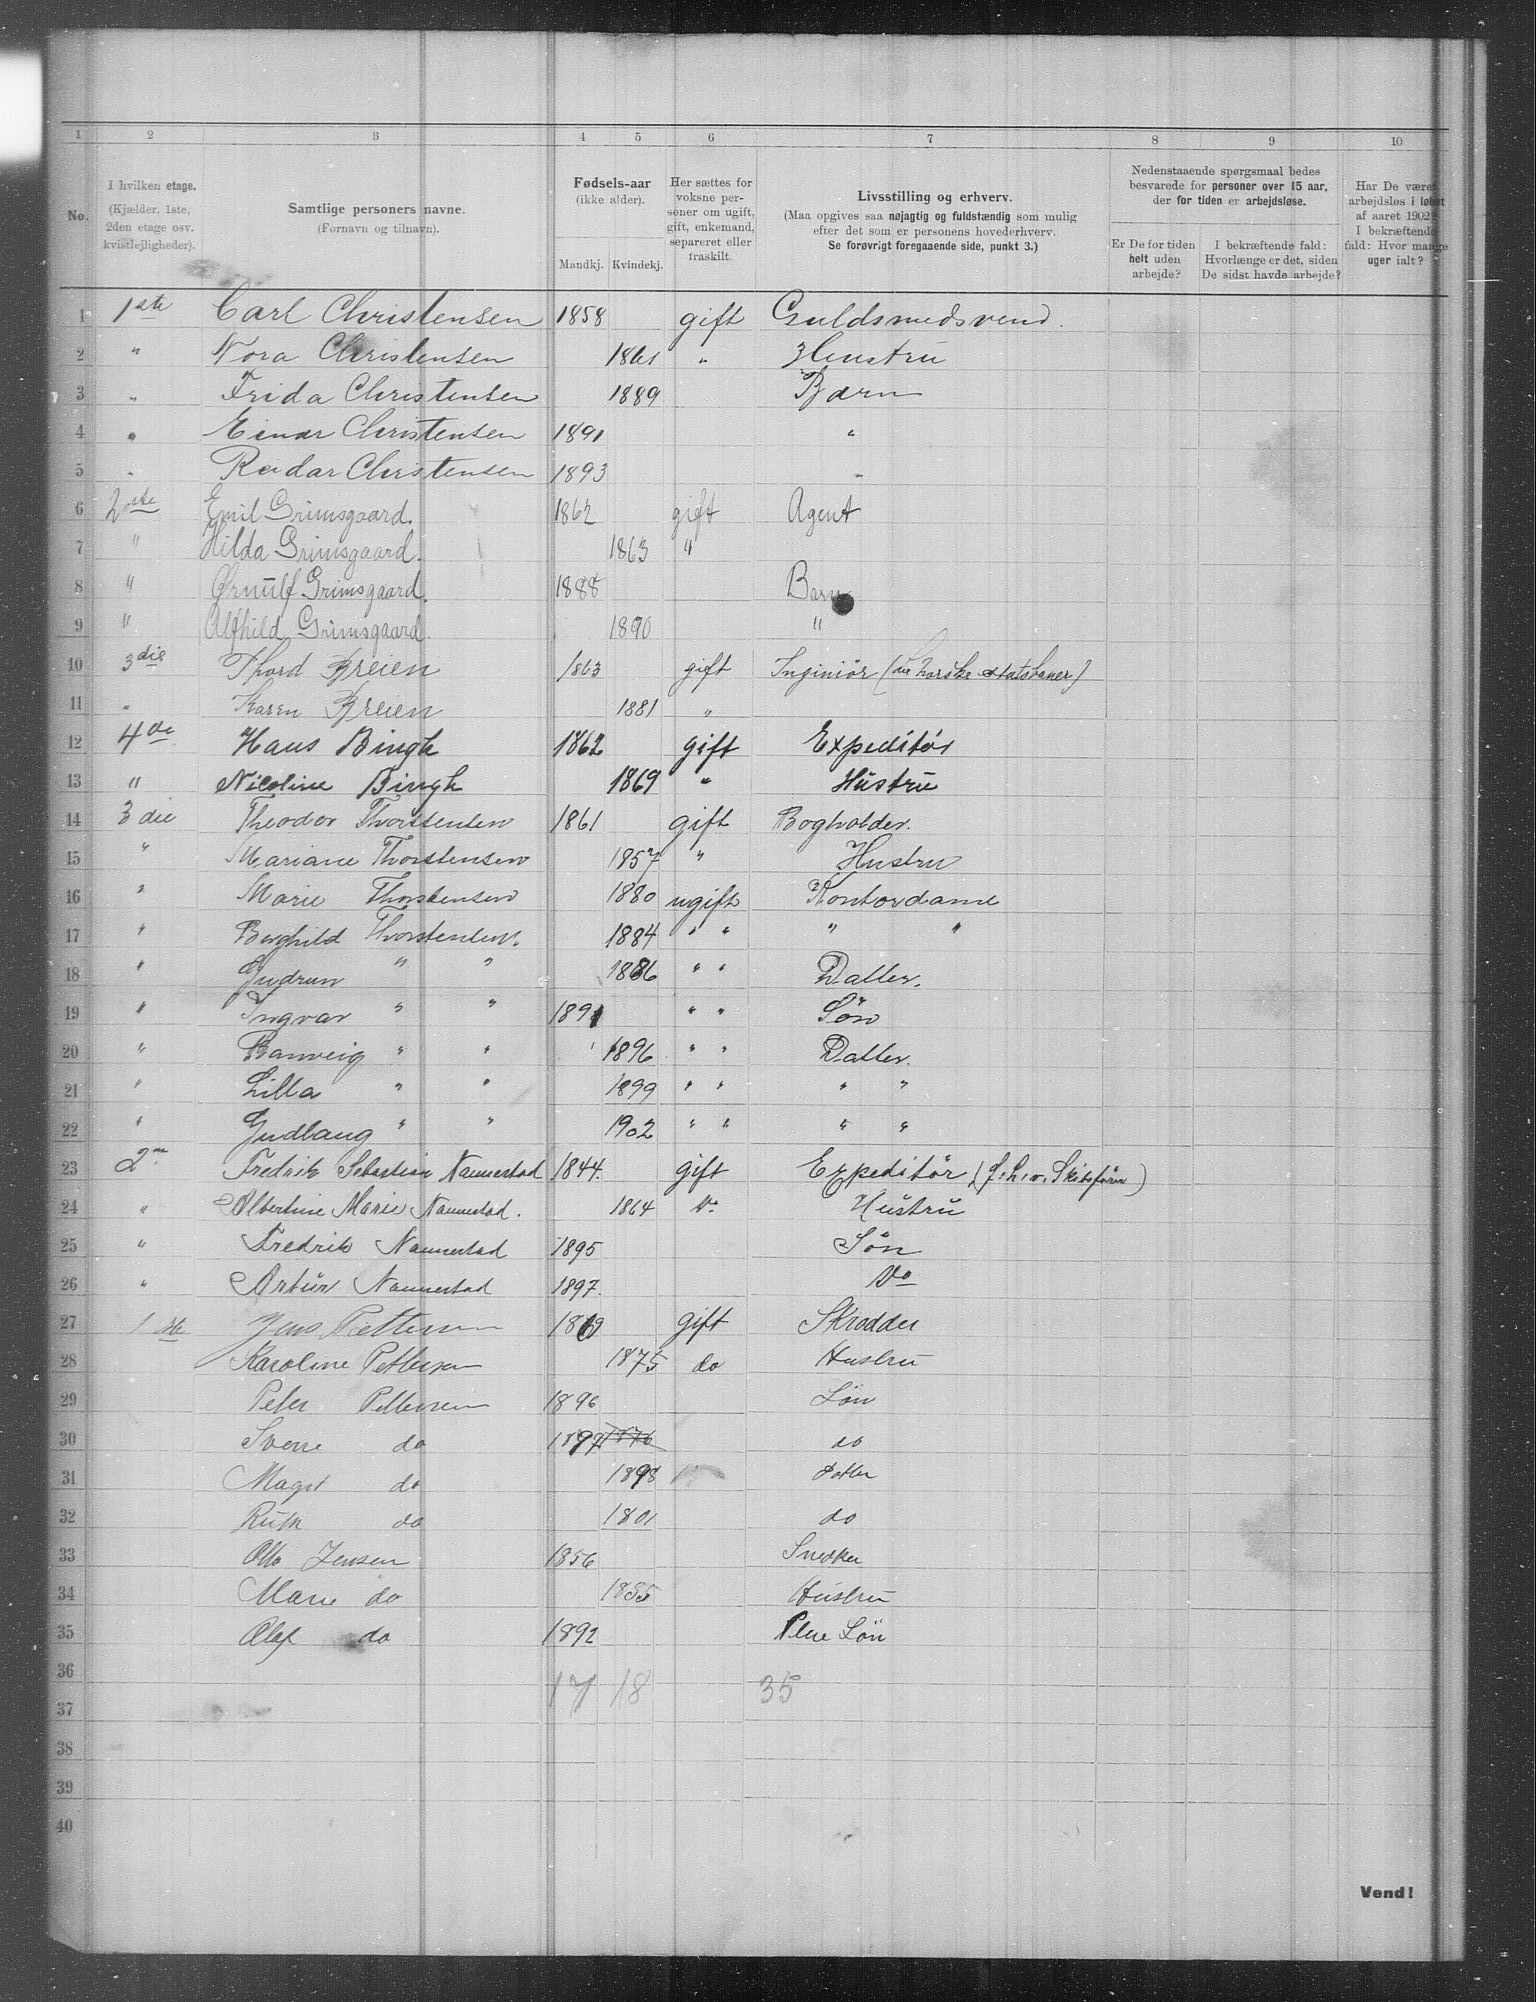 1 2 3 4 5 6 7 8 9 10
No.
I hvilken etage.
(Kjælder, 1ste,
2den etage osv.
kvistlejligheder).
Samtlige personers navne.
(Fornavn og tilnavn).
Fødsels-aar
(ikke alder).
Mandkj. Kvindekj.
Her sættes for
voksne per-
soner om ugift,
gift, enkemand,
separeret eller
fraskilt.
Livsstilling og erhverv.
(Maa opgives saa nøjagtig og fuldstændig som mulig
efter det som er personens hovederhverv.
Se forøvrigt foregaaende side, punkt 3.)
Nedenstaaende spørgsmaal bedes
besvarede for personer over 15 aar,
der for tiden er arbejdsløse.
Er De for tiden
helt uden
arbejde?
I bekræftende fald:
Hvorlænge er det, siden
De sidst havde arbejde?
Har De været
arbejdsløs i løbet
af aaret 1902?
I bekræftende
fald: Hvor mange
uger ialt?
1 1ste Carl Christensen 1858 gift Guldsmedsvend.
2 " Nora Christensen 1861 " Hustru
3 " Frida Christensen 1889 Børn
4 " Einar Christensen 1891 "
5 " Reidar Christensen 1893 "
6 2ste Emil Grimsgaard. 1862 gift Agent
7 " Hilda Grimsgaard. 1863 "
8 " Ørnulf Grimsgaard. 1888 Barn
9 " Alfhild Grimsgaard. 1890 "
10 3die Thord Breien 1863 gift Inginiör (de norske statsbaner)
11 " Karen Breien 1881 "
12 4de Hans Bingh 1862 gift Expeditör
13 " Nicoline Bingh 1869 " Hustru
14 3die Theodor Thorstensen 1861 gift Bogholder.
15 " Mariane Thorstensen 1857 " Hustru
16 " Marie Thorstensen 1880 ugift Kontordame
17 " Borghild Thorstensen. 1884 " " " "
18 " Gudrun " " 1886 " " Datter.
19 " Ingvar " " 1891 " " Søn
20 " Ranveig " " 1896 " " Datter.
21 " Lilla " " 1899 " " " "
22 " Gudlaug " " 1902 " " " "
23 2 Fredrik Sebastian Nannestad 1844. gift Expeditör
24 " Albertine Marie Nannestad. 1864 Do Hustru
25 " Fredrik Nannestad 1895 Søn
26 " Artur Nannestad 1897. Do
27 1ste Jens Pettersen 1869 gift Skrædder
28 Karoline Pettersen 1875 do Hustru
29 Peter Pettersen 1896 Søn
30 Sverre do 1897 1876 do
31 Magit do 1898 Datter
32 Ruth do 1801 do
33 Otto Jensen 1856 Snedker
34 Marie do 1855 Hustru
35 Olaf do 1892 Søn
36 17 18 35
37
38
39
40
Vend!